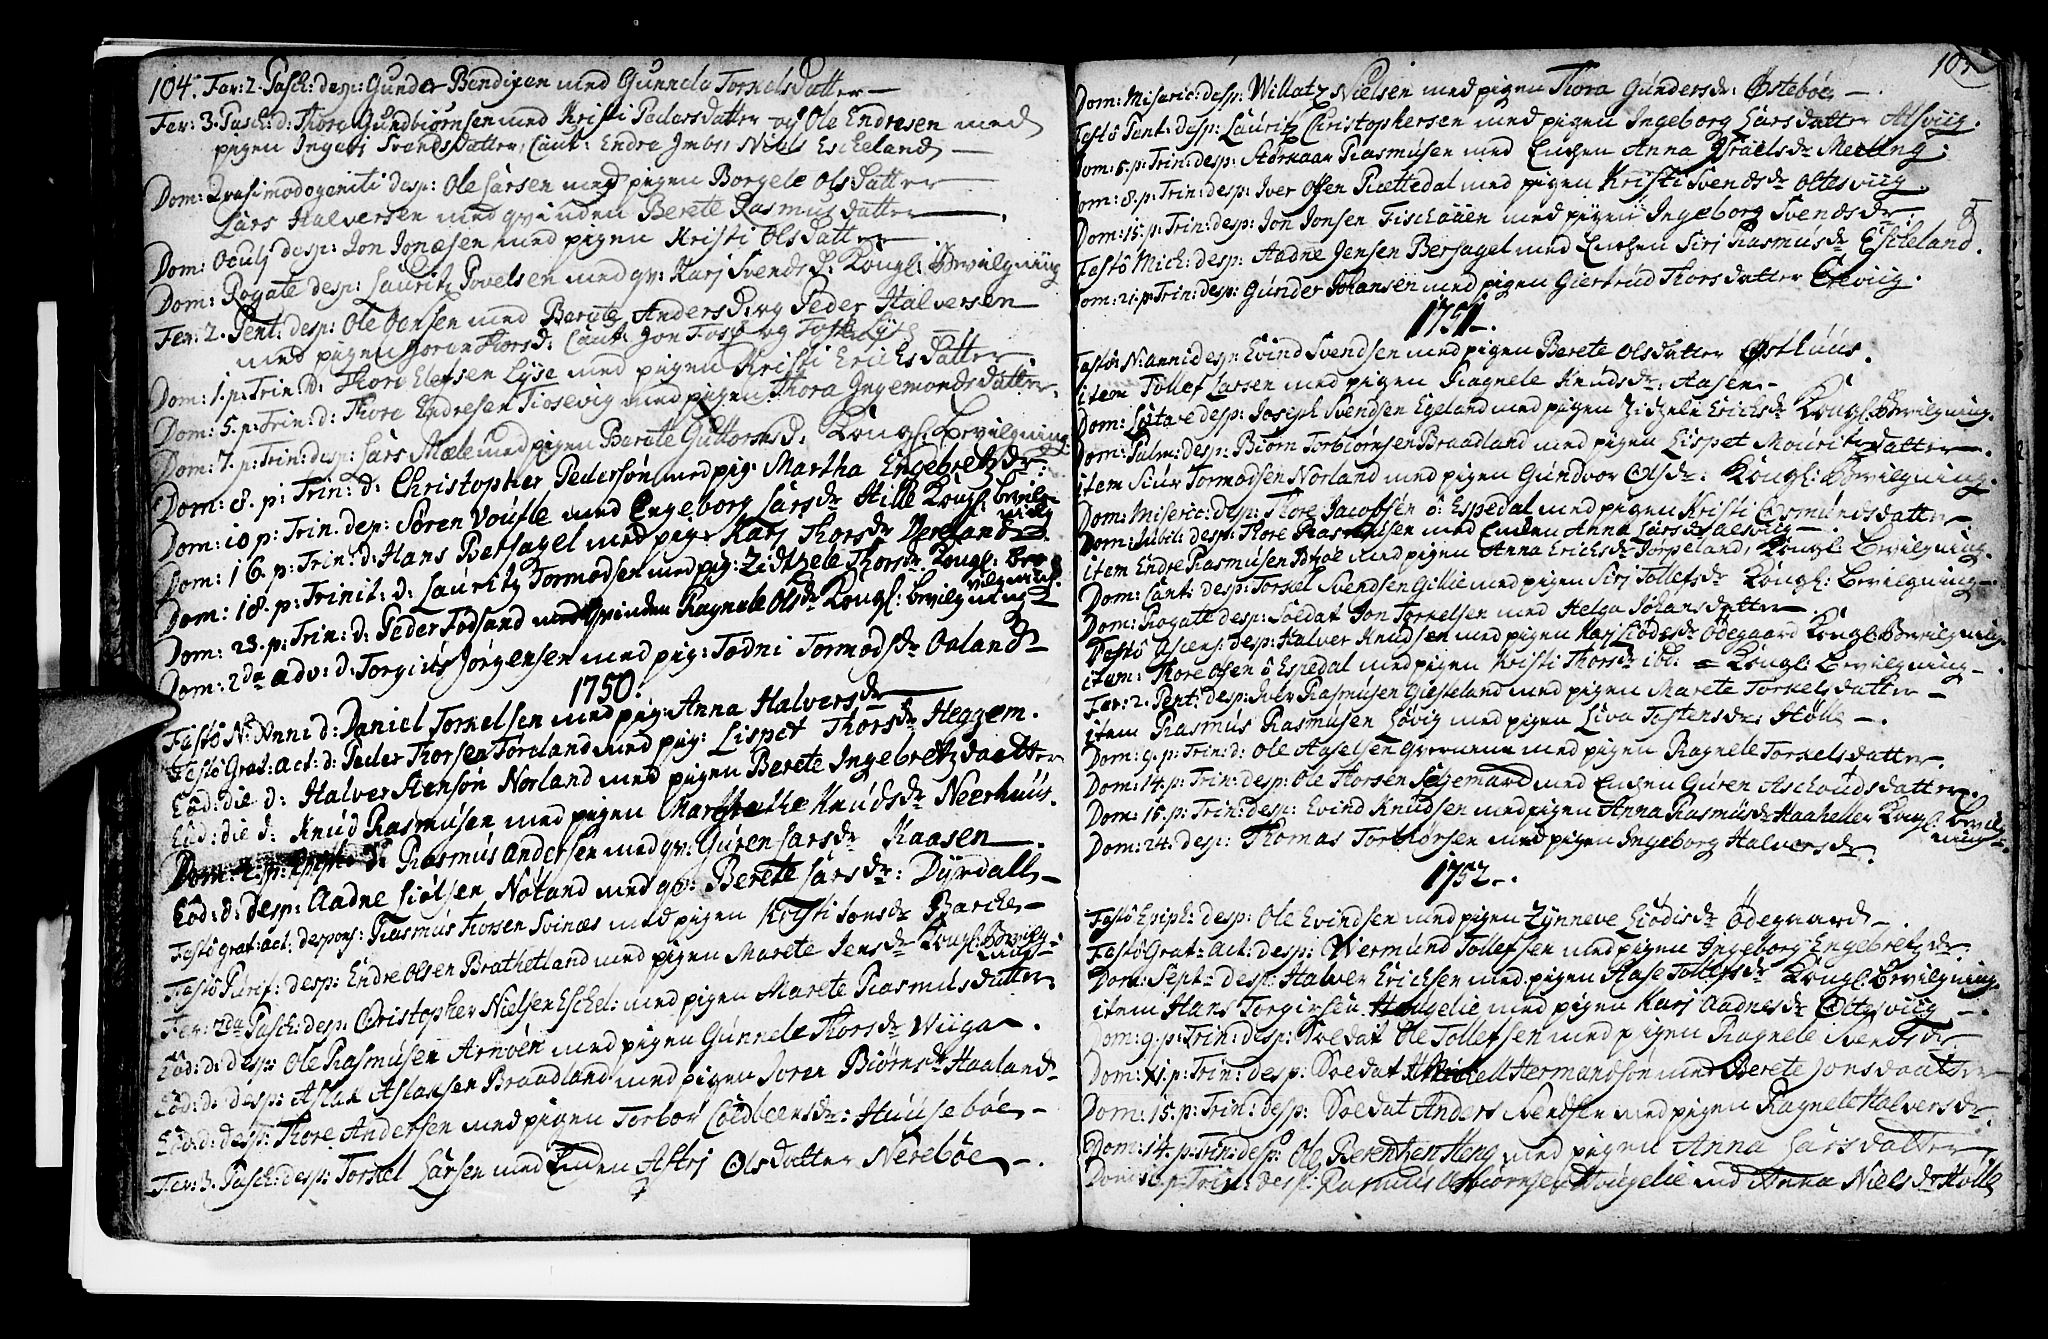 104. Fer: 2. Pasch: desp: Gunder Bendixen med Gunnele Torkelsdatter —
Fer: 3. Pasch: d: Thore Gundbiørnsen med Kristi Pedersdatter og Ole Endresen med
pigen Ingeb: Svendsdatter, Caut: Endre Imbs, Niels Eskeland —
Dom: Qvasimodogeniti desp: Ole Larsen med pigen Borgele Olsdatter
Lars Halversen med qvinden Berete Rasmusdatter —
Dom: Oculj desp: Jon Jonesen med pigen Kristi Olsdatter
Dom: Rogate desp: Lauritz Povelsen med qv: Karj Svends D: Kongl: Bevilgning
Fer: 2. Pent: desp: Ole Oensen med Berete Anders D: og Peder Halversen
med pigen Joren Thors D: Caut: Jon Foss og Lyse
Dom: 1. p: Trin: D: Thore Elefsen Lyse med pigen Kristi Ericksdatter
Dom: 5. p: Trin: d: Thore Endresen Tiosevig med pigen Thora Ingemondsdatter.
Dom: 7. p: Trin: desp: Lars Mæle med pigen Berete Guttorms d: Kongl: Bevilgning
Dom: 8. p: Trin: d: Christopher Pedersøn med pig: Martha Engebretzdr:
Dom: 10 p: Trin: dep: Søren Voufle med Engeborg Larsdr Hille Kongl: bevilg
ning
Dom: 16. p: Trin: d: Hans Bersagel med pige Karj Thorsdr Vereland
Dom: 18. p: Trinit: d: Lauritz Tormodsen med pig: Zidtzele Thorsdr Kongl: Be
vilgning
Dom: 23. p: Trin: d: Peder Fodsand med Qvinden Ragnele Olsdr Kongl: bevilgning
Dom: 2da Adv: d: Torgius Jørgensen med pig: Todni Tormodsdr Oaland
1750:
Festo N: Anni d: Daniel Torkelsen med pig: Anna Halversdr
Festo Grat: act: d: Peder Thorsen Foreland med pig: Lispet Thorsdr Heggem.
Eod: die d: Halver Stensøn Norland med pigen Berete Ingebretzdaatter
Eod: die d: Knud Rasmusen med pigen Marthe Knudsdr Neerhuus.
Dom: 2. p: d: Rasmus Andersen med qv: Guren Larsdr Kaasen —
Eod: d: desp: Aadne Siølsen Nøland med qv: Berete Larsdr: Dyrdall —
Festo grat: act: despons: Rasmus Thorsen Svinæs med pigen Kristi Jonsdr Barche —
Festo Purif: desp: Endre Olsen Brathetland med pigen Marete Jensdr Kongl: Bevilg
ning
Fer: 2da Pasch: desp: Christopher Nielsen Eschel: med pigen Marete Rasmusdatter
Eod: d: desp: Ole Rasmusen Arnøen med pigen Gunnele Thorsdr Wiiga —.
Eod: d: desp: Aslak Aslaksen Braadland med pigen Joren Biørnsdr Haaland
Eod: d: desp: Thore Andersen med pigen Torbor Coldbeensdr: Huusebøe —
Fer: 3. Pasch: desp: Torkel Larsen med Enken Astrj Olsdatter Nerebøe —.
105
Dom: Miseric: desp: Willatz Nielsen med pigen Thora Gundersdr: Østebøe —.
Festo Pent: desp: Lauritz Christophersen med pigen Ingeborg Larsdatter Alsviig.
Dom: 5. p: Trin: desp: Størkaar Rasmusen med Enchen Anna Israelsdr Meeling.
Dom: 8. p: Trin: desp: Iver Olsen Rættedal med pigen Kristi Svendsdr Oltesviig.
Dom: 15. p: Trin: desp: Jon Jonsen Fiskaaen med pigen Ingeborg Svendsdr.
Festo Mich: desp: Aadne Jensen Bersagel med Enchen Sirj Rasmusdr Eskeland.
Dom: 21. p: Trin: desp: Gunder Johansen med pigen Giertrud Thorsdatter Ereviig.
1751.
Festo N: anni desp: Evind Svendsen med pigen Berete Olsdatter Østhuus.
item Tollef Larsen med pigen Ragnele Knudsdr: Aasen —
Dom: Lætare desp: Joseph Svendsen Egeland med pigen Zidzele Ericksdr Kongl: Bevilgning.
Dom: Palm: desp: Biørn Torbiørnsen Braadland med pigen Lispet Mouritzdatter —.
item Siur Tormodsen Norland med pigen Gundvor Olsdr: Kongl: Bevilgning.
Dom: Miseric: desp: Thore Jacobsen ø: Espedal med pigen Kristi Osmundsdatter —
Dom: Jubil: desp: Thore Rasmusen med Enchen Anna Larsdr
item Endre Rasmusen Idsøe med pigen Anna Ericksdr Jørpeland, Kongl: Bevilgning.
Dom: Cant: desp: Torkel Svendsen Gillie med pigen Sirj Tollefsdr Kongl: Bevilgning —
Dom: Rogate desp: Soldat Jon Torkelsen med Helga Johansdatter —.
Festo Ascens: desp: Halver Knudsen med pigen Karj Liødesdr Ødegaard Kongl: Bevilgning.
item: Thore Olsen ø Espedal med pigen Kristi Thorsdr ibl: = Kongl: Bevilgning —
Fer: 2. Pent: desp: Iver Rasmusen Gieskeland med pigen Marete Torkelsdatter —
item Rasmus Rasmusen Løvig med pigen Liva Tostensdr: Holle —.
Dom: 9. p: Trin: d: Ole Axelsen med pigen Ragnele Torkelsdatter —.
Dom: 14. p: Trin: desp: Ole Thorsen med Enchen Guren Aschoudsdatter —.
Dom: 15. p: Trin: desp: Evind Knudsen med pigen Anna Rasmusdr Haaheller Kongl: Bevilg
ning
Dom: 24. desp: Thomas Torbiorsen med pigen Ingeborg Halversdr.
1752.
Festo Epiph: desp: Ole Evindsen med pigen Zynneve Liodisdr Ødegaard —.
Festo Grat: Act: desp: Wermund Tollefsen med pigen Ingeborg Engebretzdr.
Dom: Sept: desp: Halver Ericksen med pigen Aase Tollefsdr Kongl: Bevilgning.
item Hans Torgirsen Hougelie med pigen Karj Aadnesdr Oltesviig —.
Dom: 9. p: Trin: desp: Soldat Ole Tollefsen med pigen Ragnele Svendsdr
Dom: XI. p: Trin: desp: Soldat Michell Hermandsøn med Berete Jonsdaatter
Dom: 15. p: Trin: desp: Soldat Anders Svendsen med pigen Ragnele Halversdr.
Dom: 14. p: trin: desp: Ole Berentzen Heng med pigen Anna Larsdatter
Dom: 16. p: Trin: desp: Rasmus Asbiørnsen Hougelie med Anna Nielsdr Holle